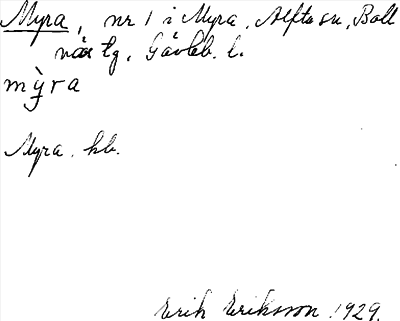 Myra, nr 1 i Myra, Alfta sn, Boll
näs tg, Gävleb. l.
mỳra
Myra. hb.
Erik Eriksson 1929.